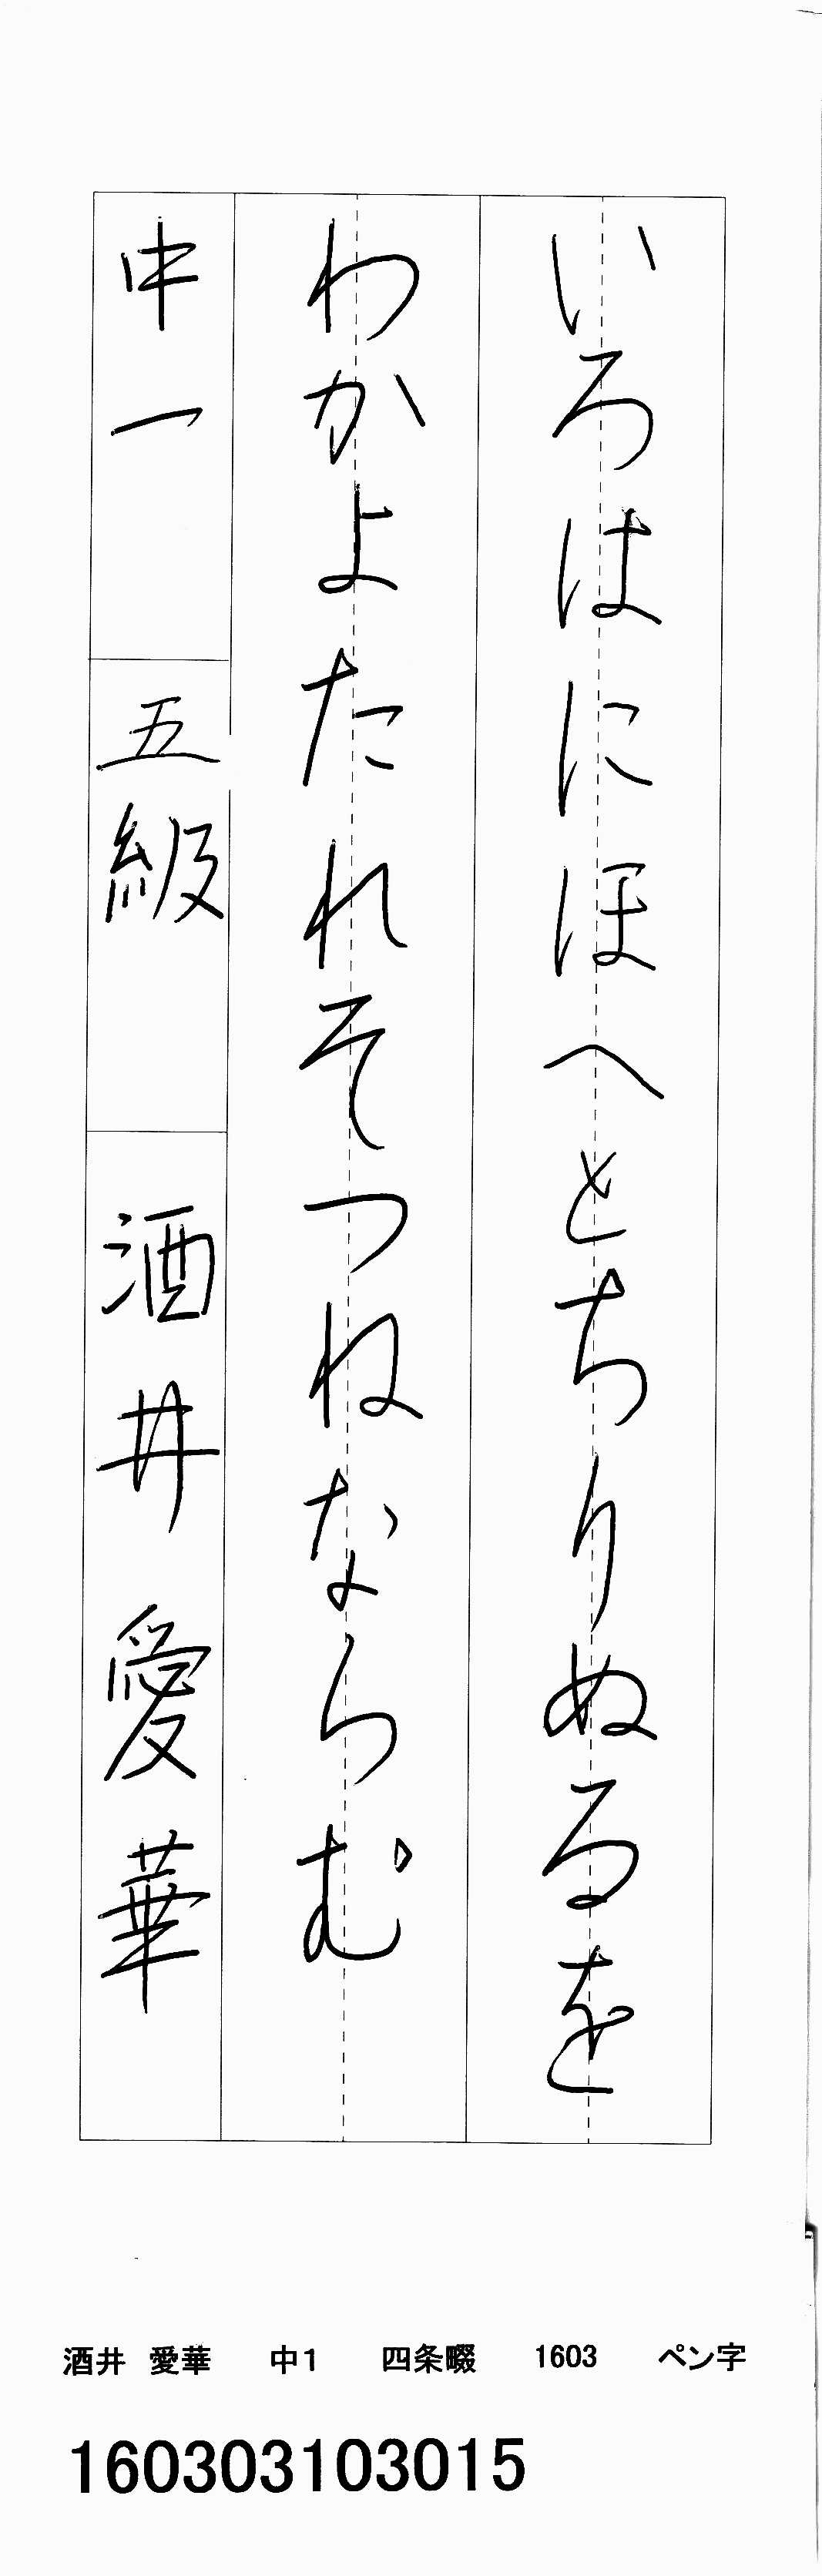 いろはにほへとちりぬるを
わかよたれそつねならむ
中一 五級 酒井愛華
酒井 愛華 中1 四条畷 1603 ペン字
160303103015